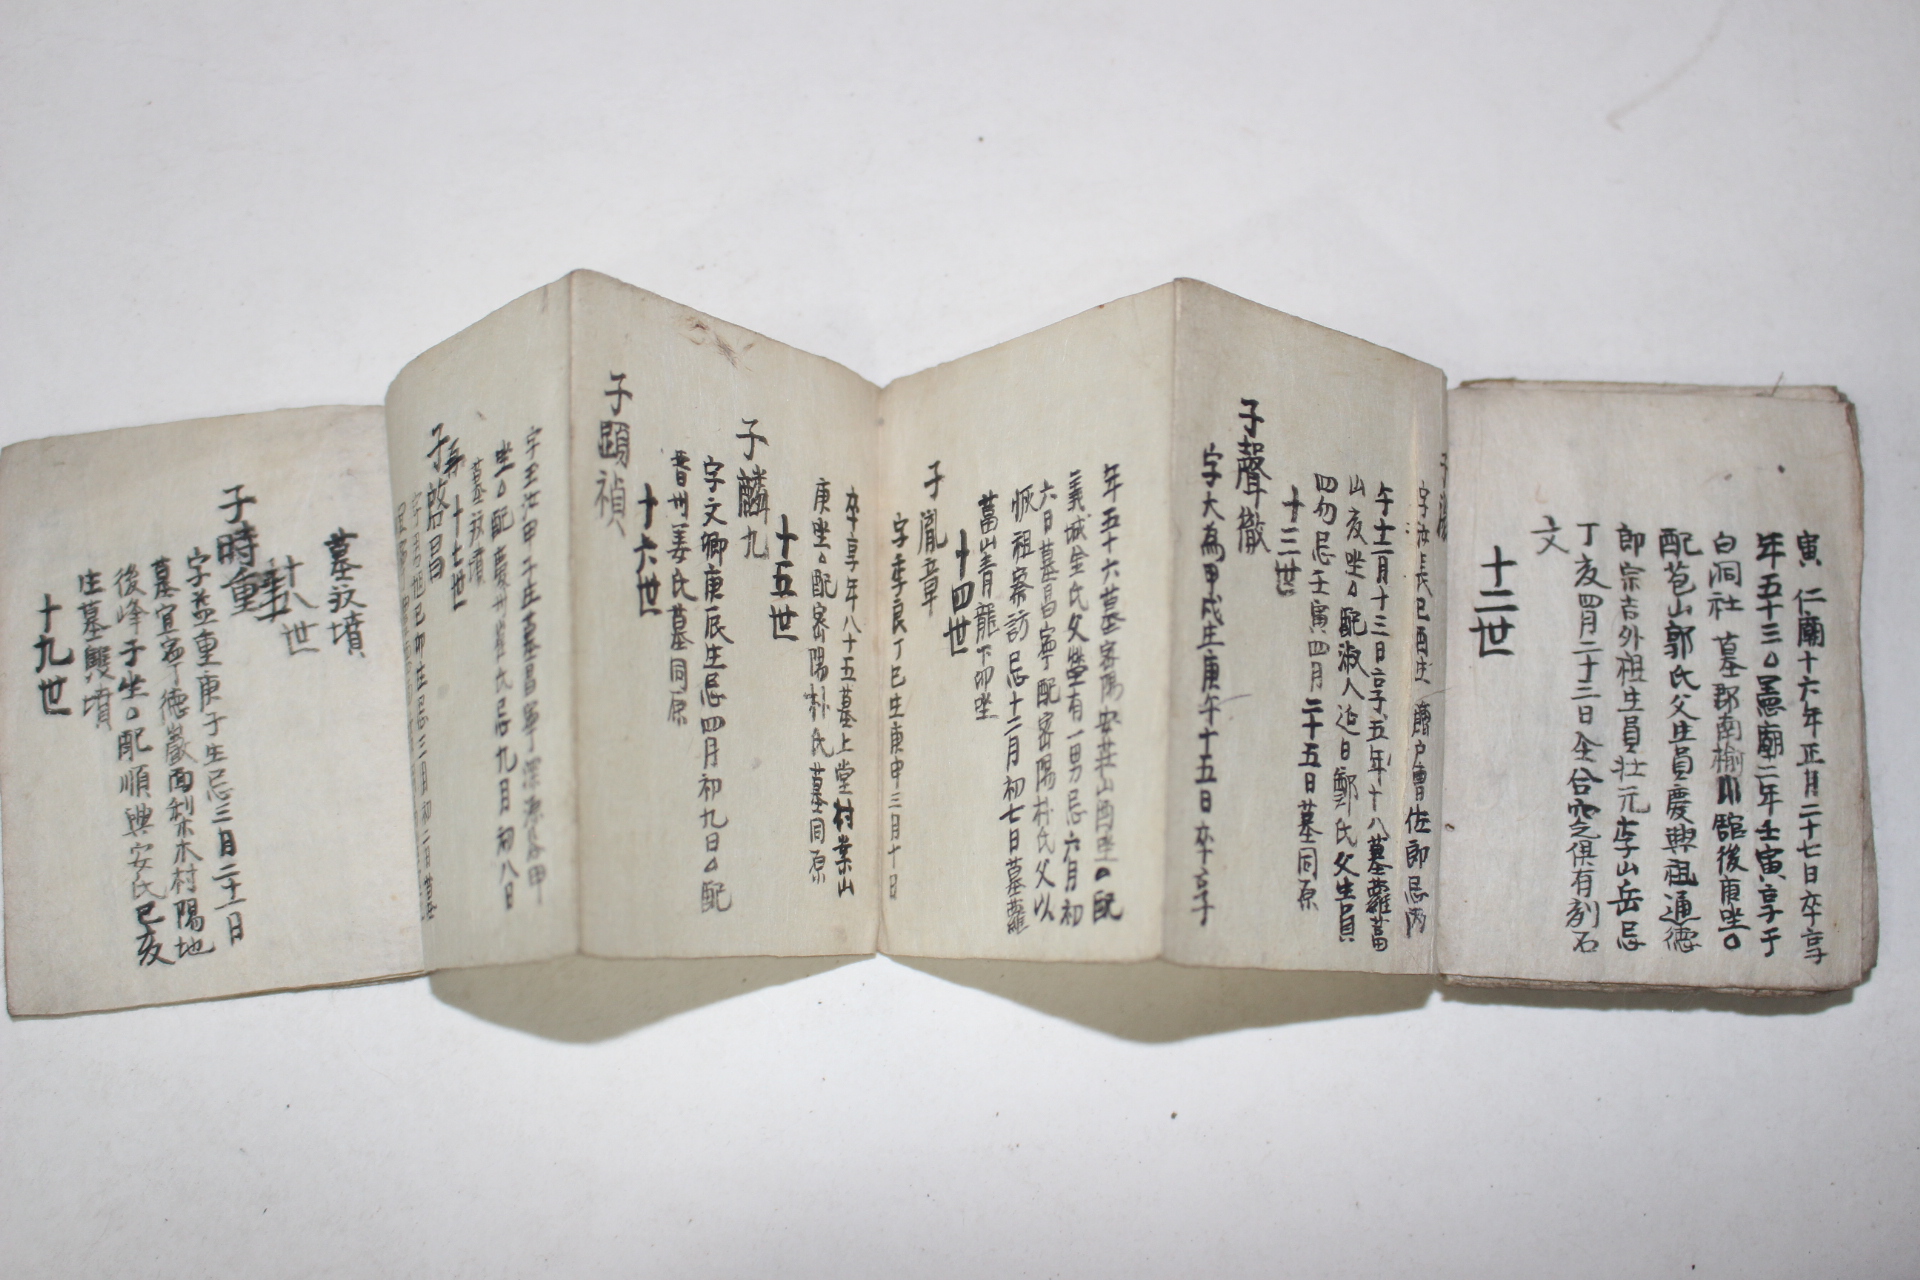 寅 仁廟十六年正月二十七日卒享
年五十三○憲廟二年士寅享于
白洞社 墓郡南榆川館後庚坐○
配苞山郭氏父生員慶興祖通德
郎宗吉外祖生員壮元李山岳忌
丁亥四月二十三日仝合窆俱有刻石
文
十二世
己酉生 齋户曺佐郎忌丙
午士二月十三日享五年十八墓蘿葍
山亥坐○配淑人迎日鄭氏父生員
四勿忌壬寅四月二十五日墓同原
十三世
子聲徹
字大為甲戌生庚午十五日卒享
年五十六墓密陽安荘山酉坐○配
義城金氏父瑩有一男忌六月初
六日墓昌寧配密陽朴氏父以
恢祖案訪忌十二月初七日墓蘿
葍山青龍下卯坐
十四世
子胤章
字季良丁巳生庚申三月十日
卒享年八十五墓上堂村案山
庚坐○配密陽朴氏墓同原
十五世
子麟九
字文卿庚辰生忌四月初九日○配
晋州姜氏墓同原
十六世
子顕禎
甲子生墓昌寧
坐○配慶州崔氏忌九月初八日
墓双墳
十七世
子啓昌
己卯生忌三月初二日墓
墓双墳
十八世
子時重
字益重庚子生忌三月二十一日
墓宜寧德巌面利木村陽地
後峰子坐○配順興安氏己亥
生墓雙墳
十九世